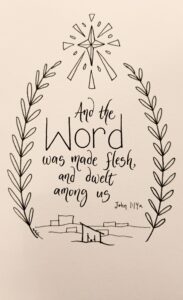 And the
Word
was made flesh,
and dwelt
among us
John 1:14a